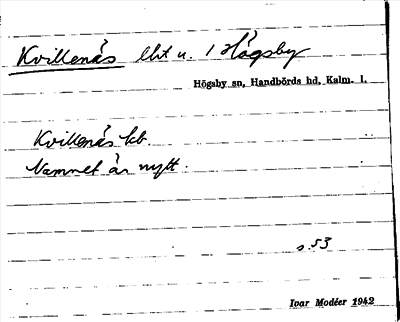 Kvillenäs lht u. 1 Högsby
Högsby sn, Handbörds hd, Kalm. l.
Kvillenäs kb.
Namnet är nytt.
s. 53
Ivar Modéer 1942